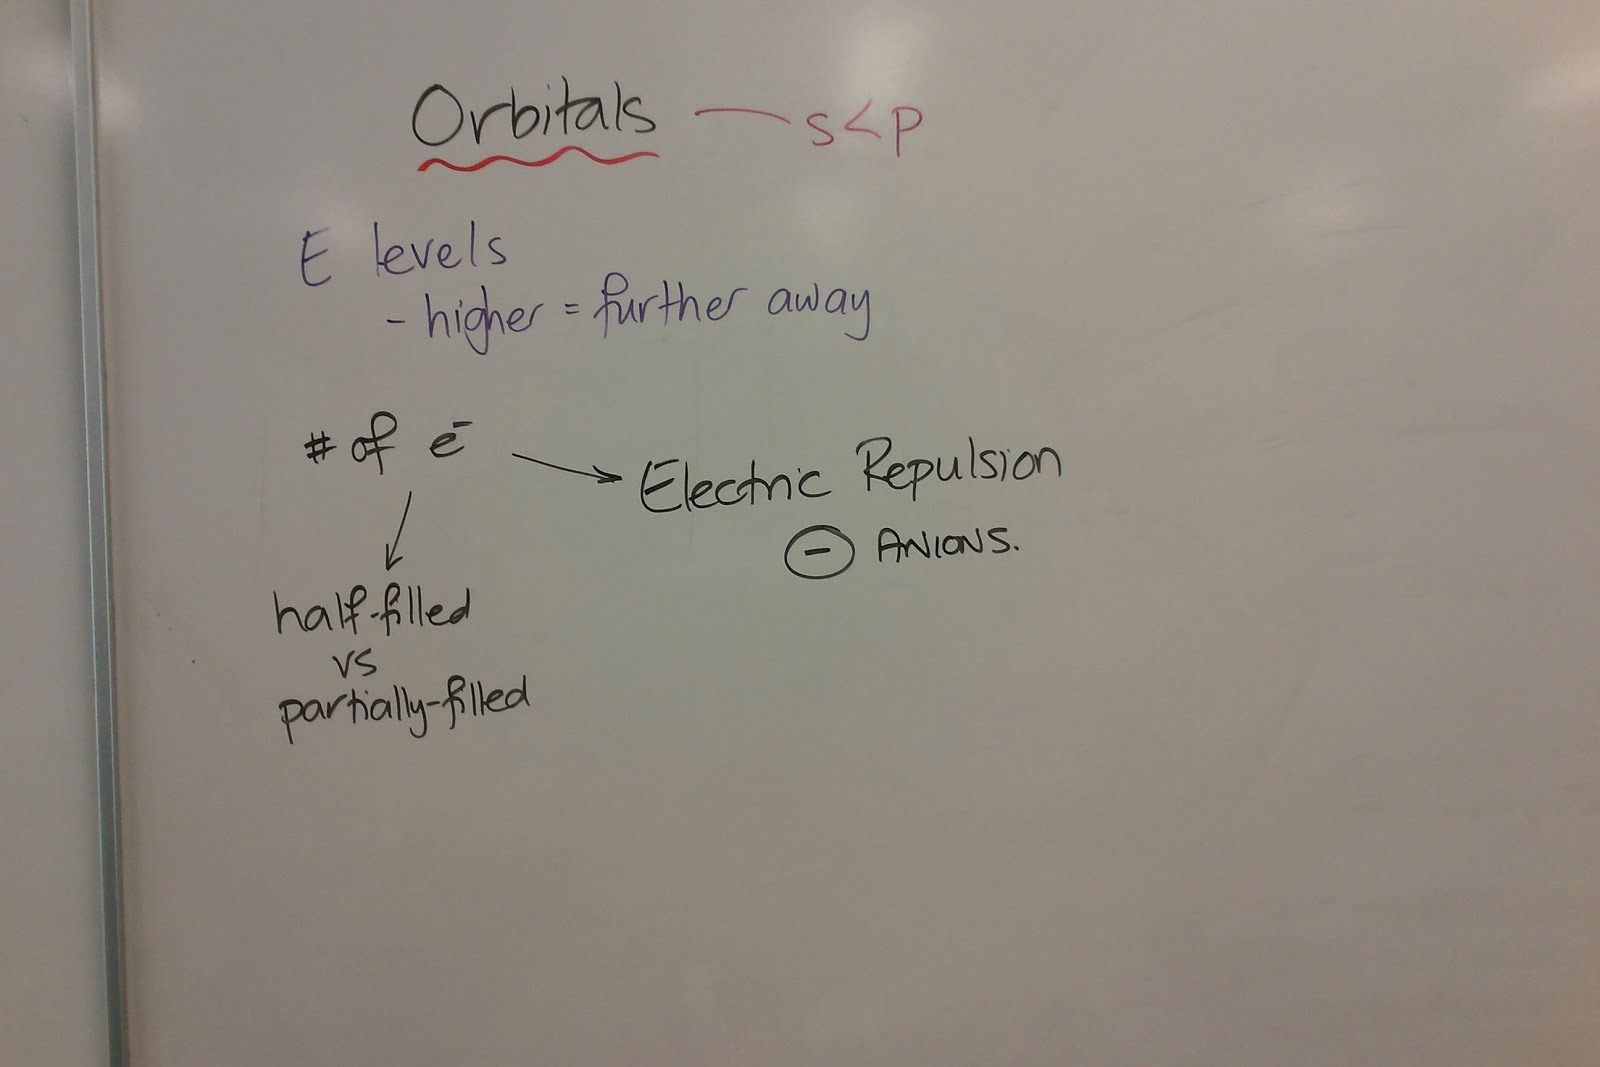 Orbitals — s<p
E levels
- higher = further away
# of e⁻ → Electric Repulsion
⊖ ANIONS.
↓
half-filled
vs
partially-filled